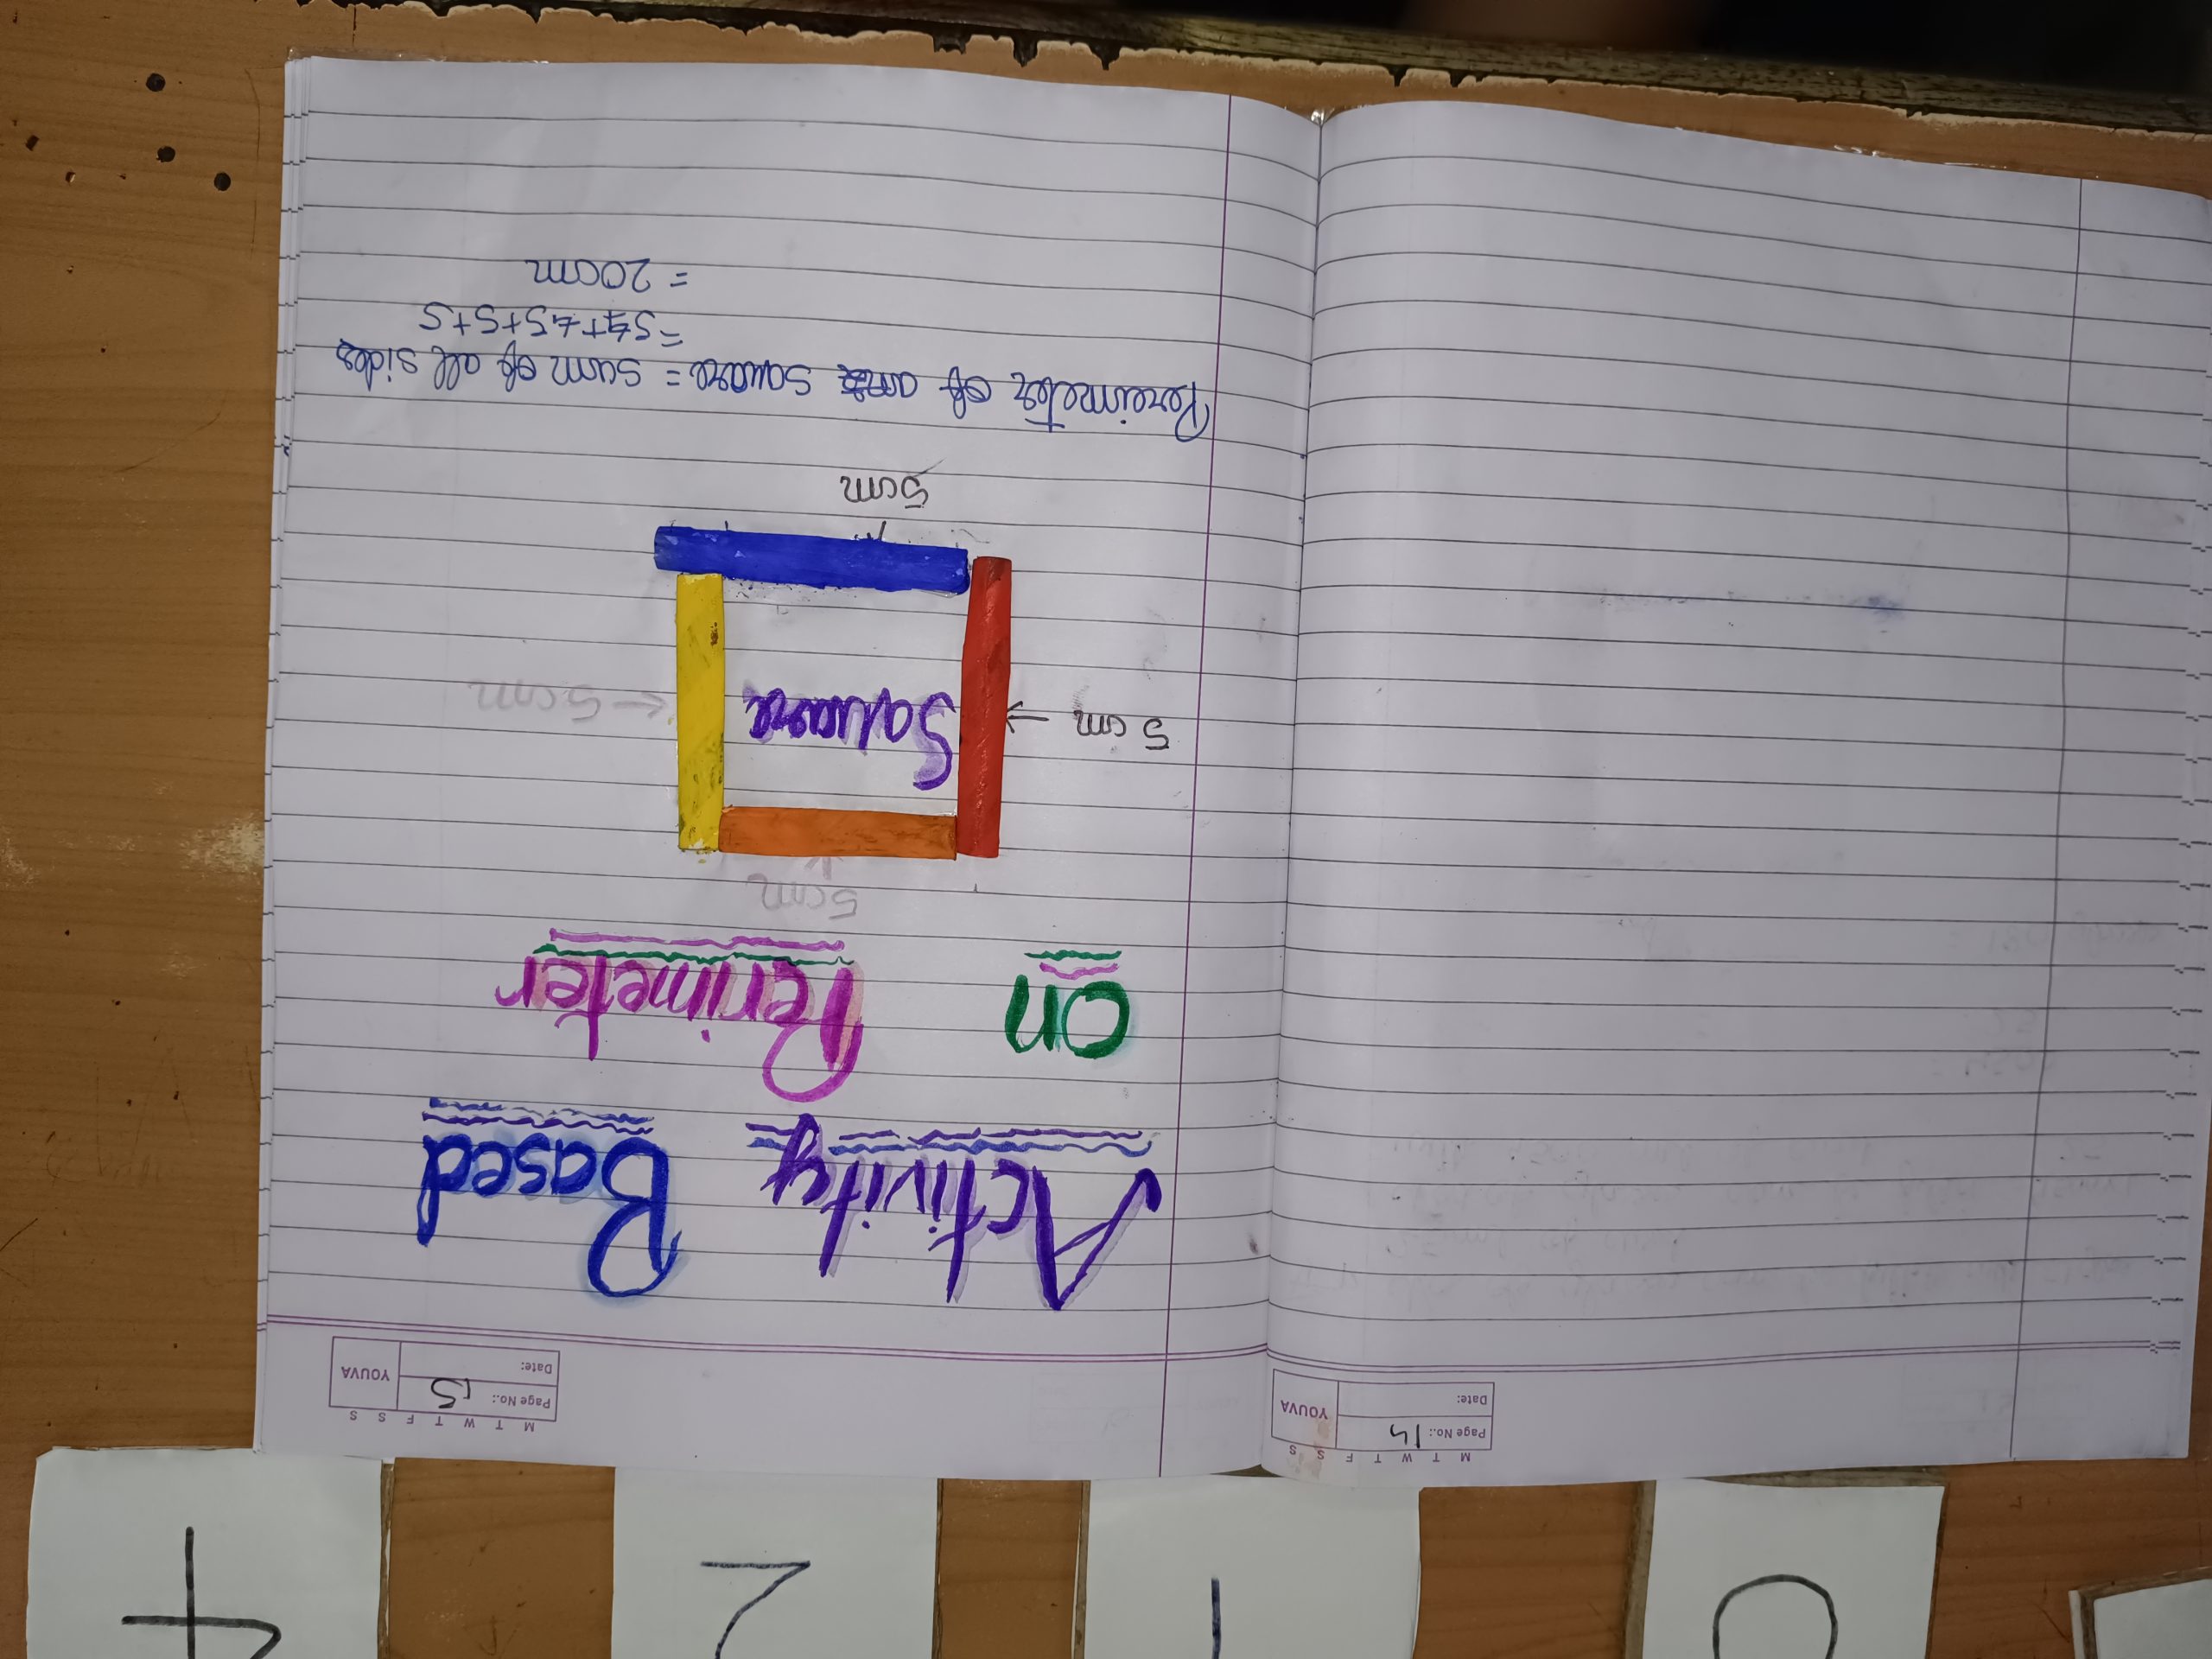 M T W T F S S
Page No.: 14
Date:
YOUVA
M T W T F S S
Page No.: 15
Date:
YOUVA
Activity Based
on Perimeter
5cm
5 cm
Square
5cm
5cm
Pereimeter of a square = sum of all sides
=5+5+5+5
= 20cm
0
1
2
4